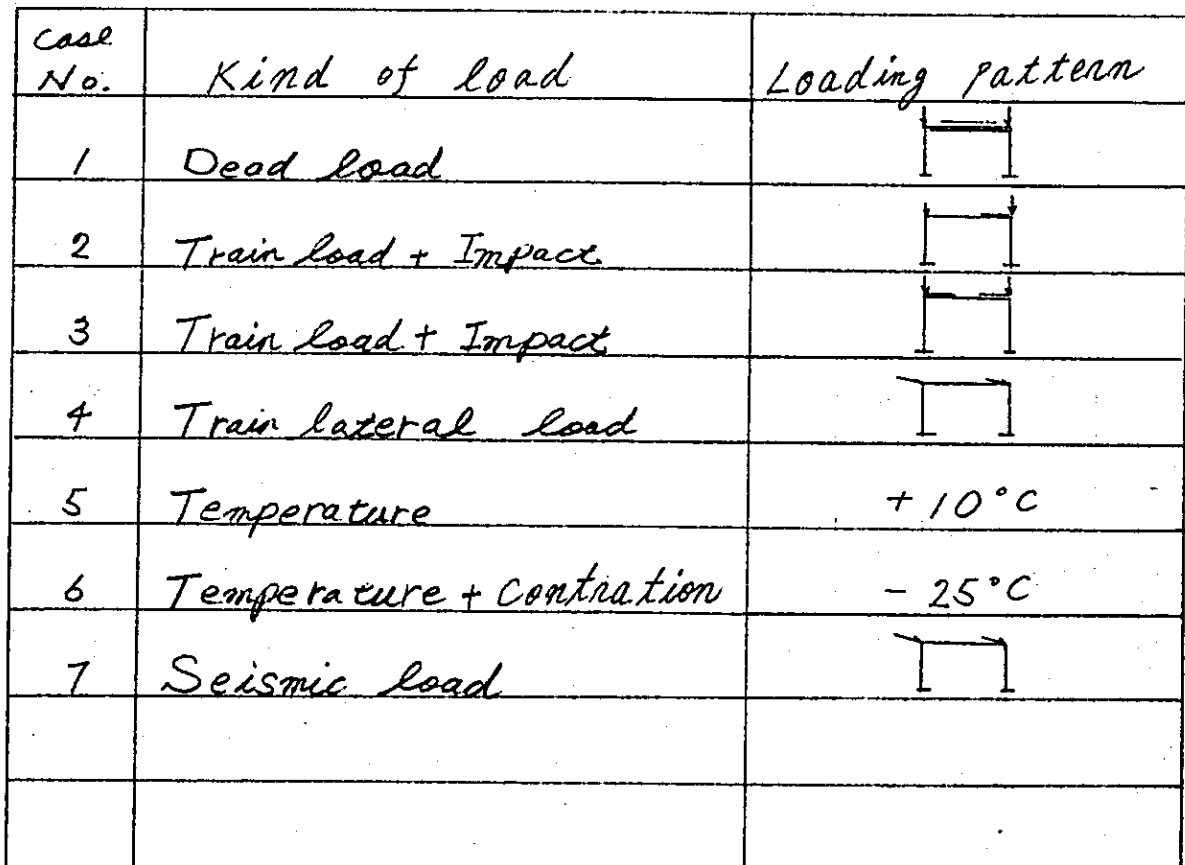 Case No. Kind of load Loading pattern
1 Dead load
2 Train load + Impact
3 Train load + Impact
4 Train lateral load
5 Temperature +10°C
6 Temperature + Contration -25°C
7 Seismic load